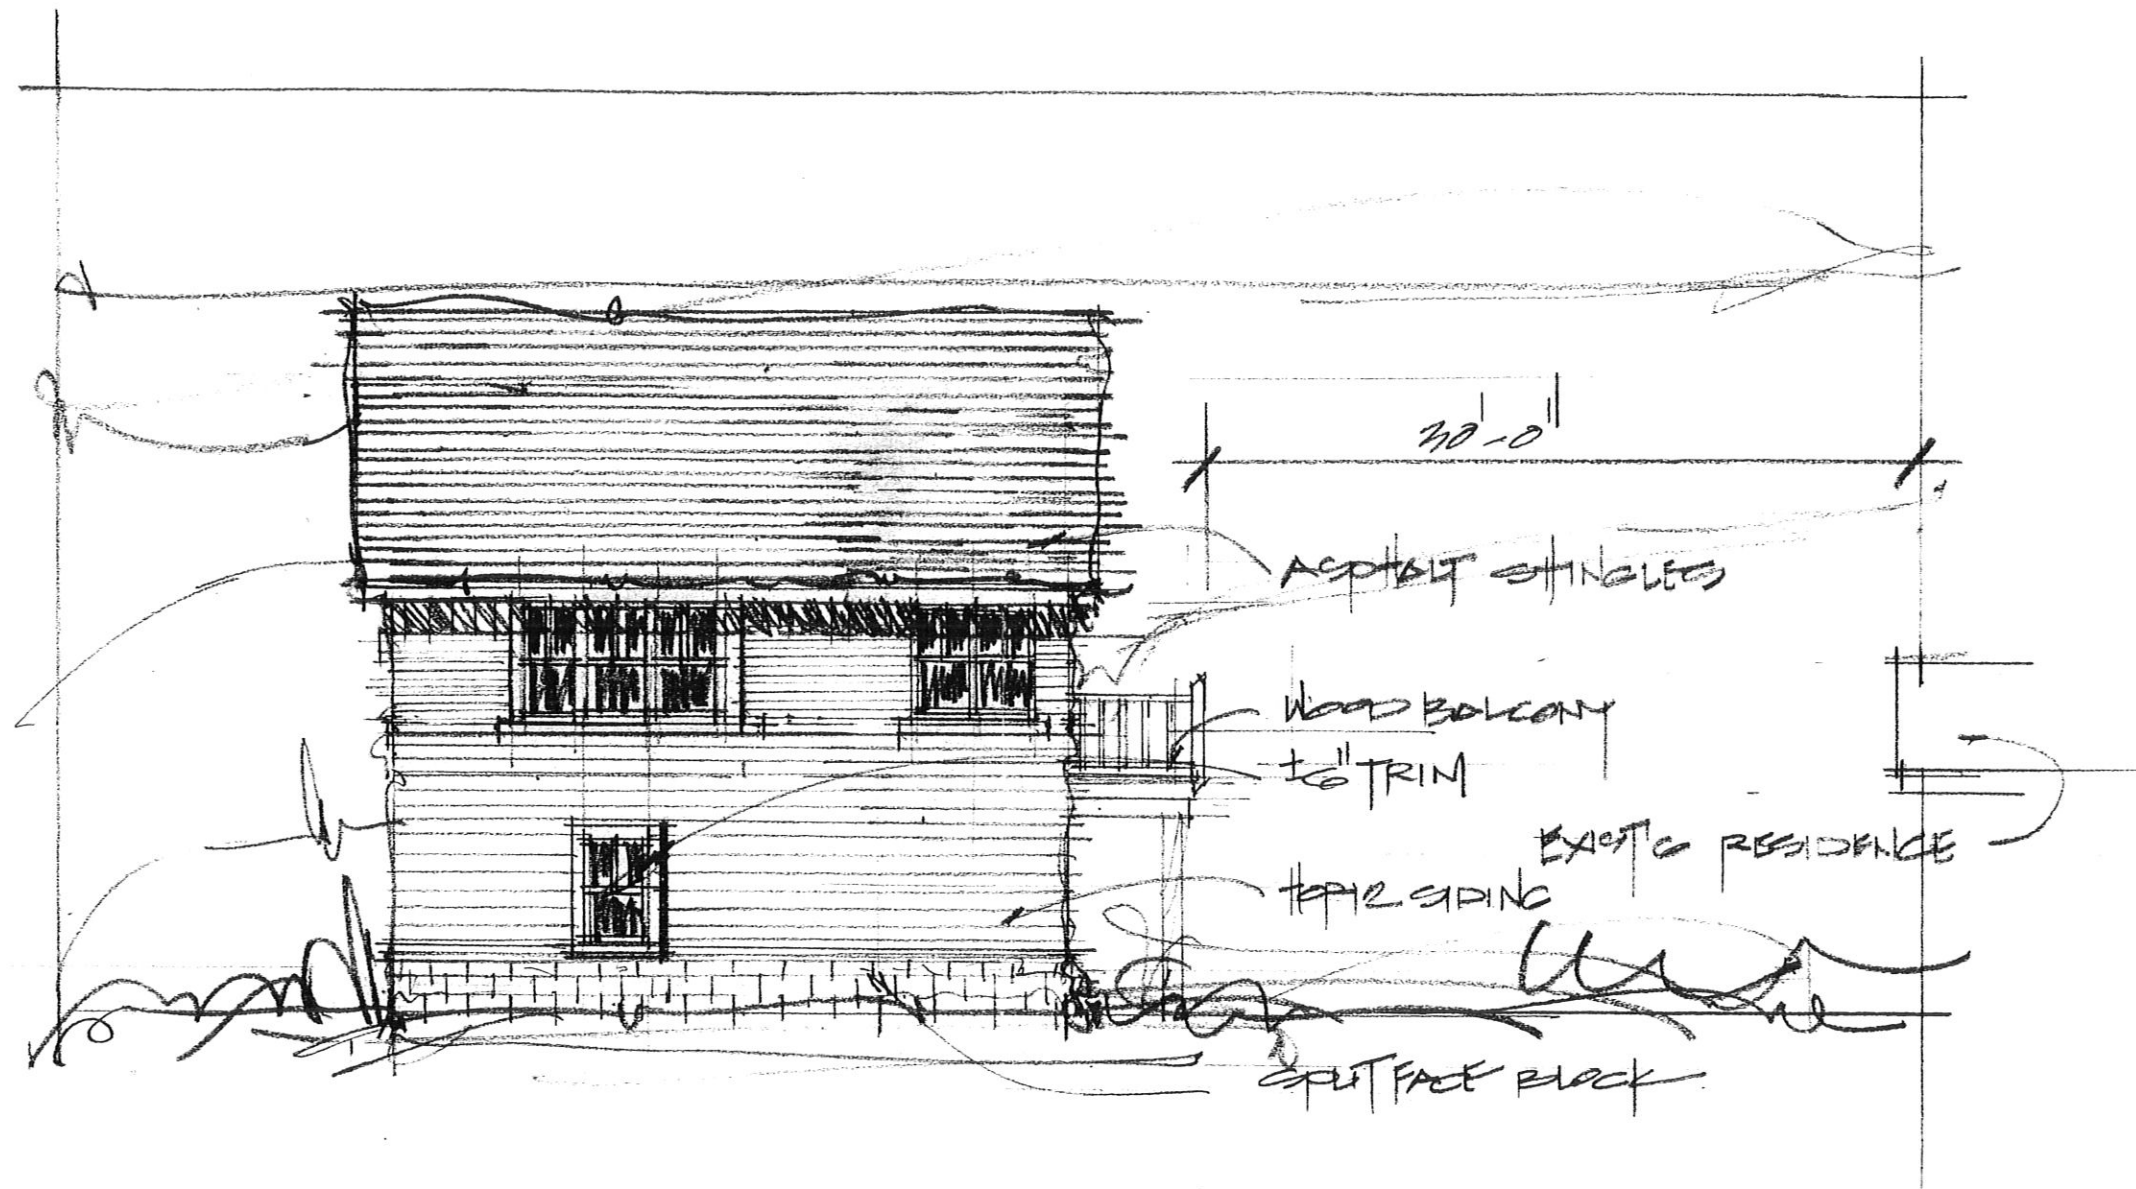 30'-0"
ASPHALT SHINGLES
WOOD BALCONY
±6" TRIM
EXIST'G RESIDENCE
HDP12 SIDING
SPLIT FACE BLOCK